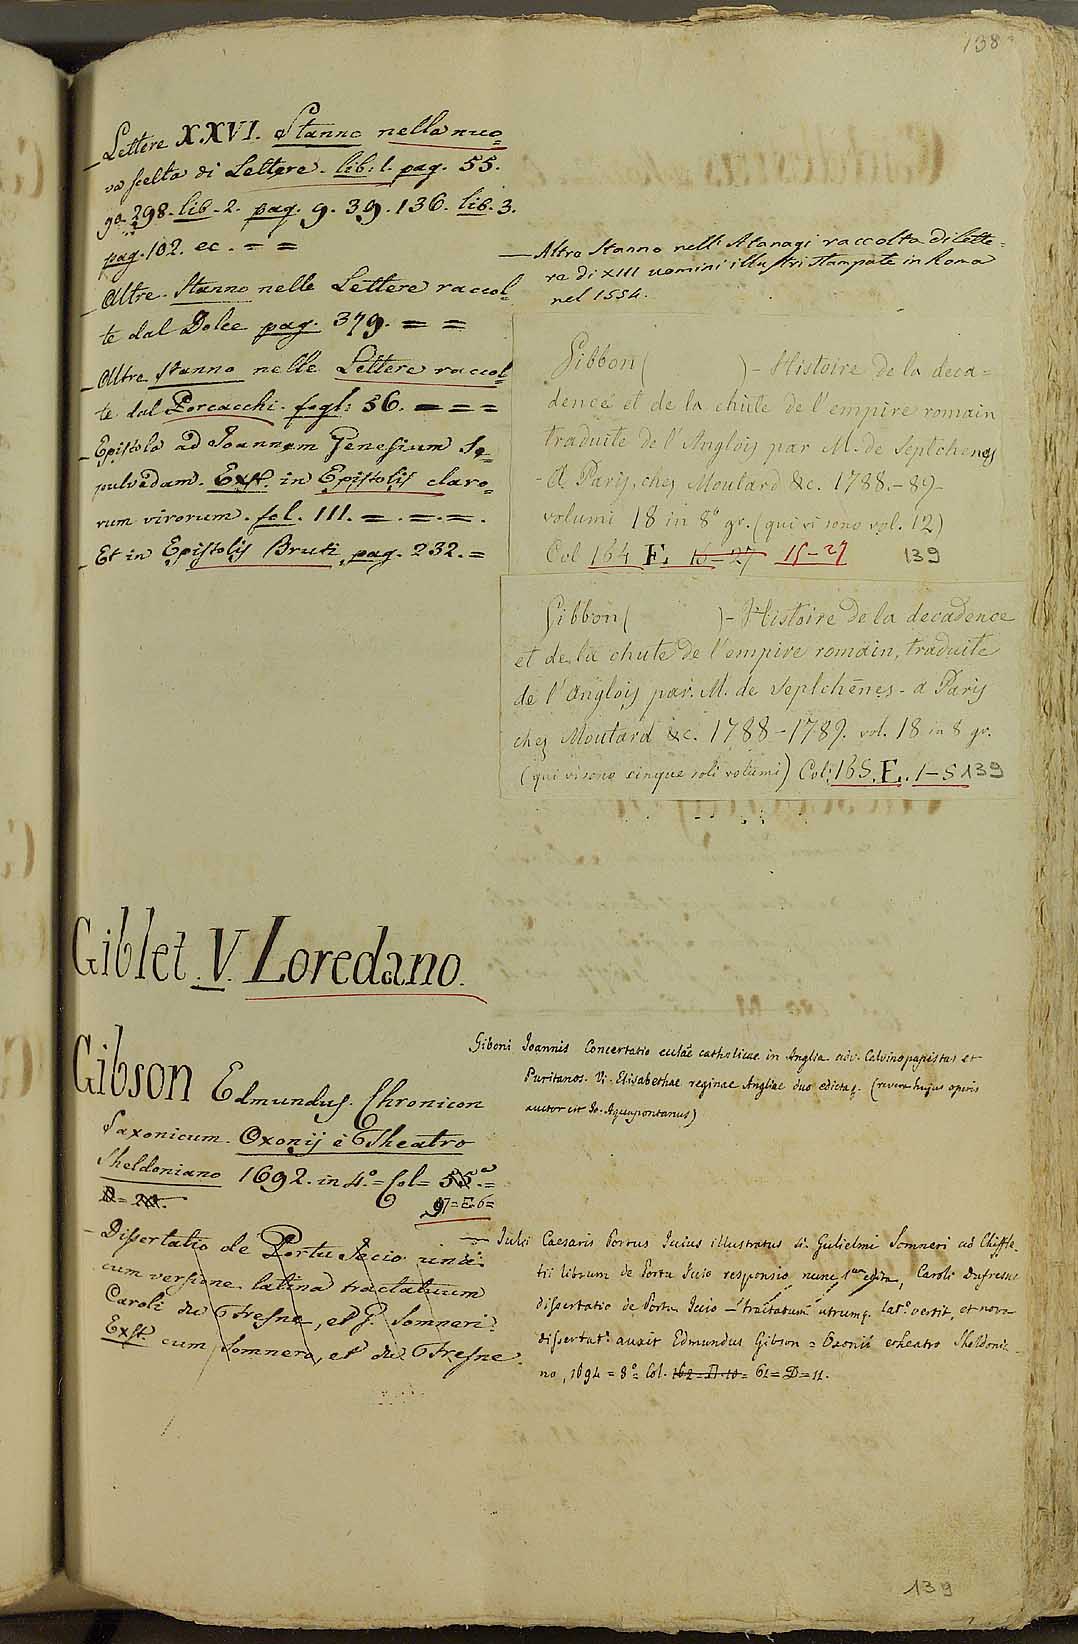 138
_ Lettere XXVI. Stanno nella nuo=
va scelta di Lettere. lib: 1. pag. 55.
298. lib. 2. pag. 9. 39. 136. lib. 3.
pag. 102. ec. = =
_ Altre stanno nelle Lettere raccol=
te dal Dolce pag. 379. = =
_ Altre stanno nelle Lettere raccol=
te dal Porcacchi. fogl: 56. = = =
_ Epistola ad Joannem Genesium Se=
pulvedam. Exst. in Epistolis claro=
rum virorum. fol. 111. =. =. =.
_ Et in Epistolis Bruti, pag. 232. =
— Altre stanno nell' Atanagi raccolta di lette=
re di XIII uomini illustri stampate in Roma
nel 1554.
Gibbon ( ) - Histoire de la deca=
dence et de la chûte de l'empire romain
traduite de l'Anglois par M. de Septchenes
- A Paris, chez Moutard &c. 1788.-89-
volumi 18 in 8° gr. (qui vi sono vol. 12)
Col 164 E. 16-27 15-27 139
Gibbon ( ) - Histoire de la decadence
et de la chute de l'empire romain, traduite
de l'Anglois par. M. de Septchênes - a Paris
chez Moutard &c. 1788-1789. vol. 18 in 8 gr.
(qui vi sono cinque soli volumi) Col: 165. E. 1-5 139
Giblet V. Loredano.
Gibson Edmundus. Chronicon
Saxonicum. Oxonij è Theatro
Sheldoniano 1692. in 4.° = Col = 55.=
97=E.6=
_ Dissertatio de Portu Iccio unà
cum versione latina tractatuum
Caroli du Fresne, et G. Somneri.
Exst. cum Somnero, et du Fresne.
Giboni Joannis Concertatio eccl̃ae catholicae in Anglia adv. Calvinopapistas et
Puritanos. Vi. Elisabethae reginae Angliae duo edicta. (revera hujus operis
auctor est Jo. Aquapontanus)
— Julii Caesaris Portus Iccius illustratus si. Gulielmi Somneri ad Chiffle
tii librum de Portu Iccio responsio nunc 1um edita, Caroli Dufresne
dissertatio de Portu Iccio — tractatum utrumq. lat.e vertit, et nova
dissertat.e auxit Edmundus Gibson = Oxonii e theatro Sheldonia=
no, 1694 = 8°= Col. 162=D.10= 61=D=11.
139